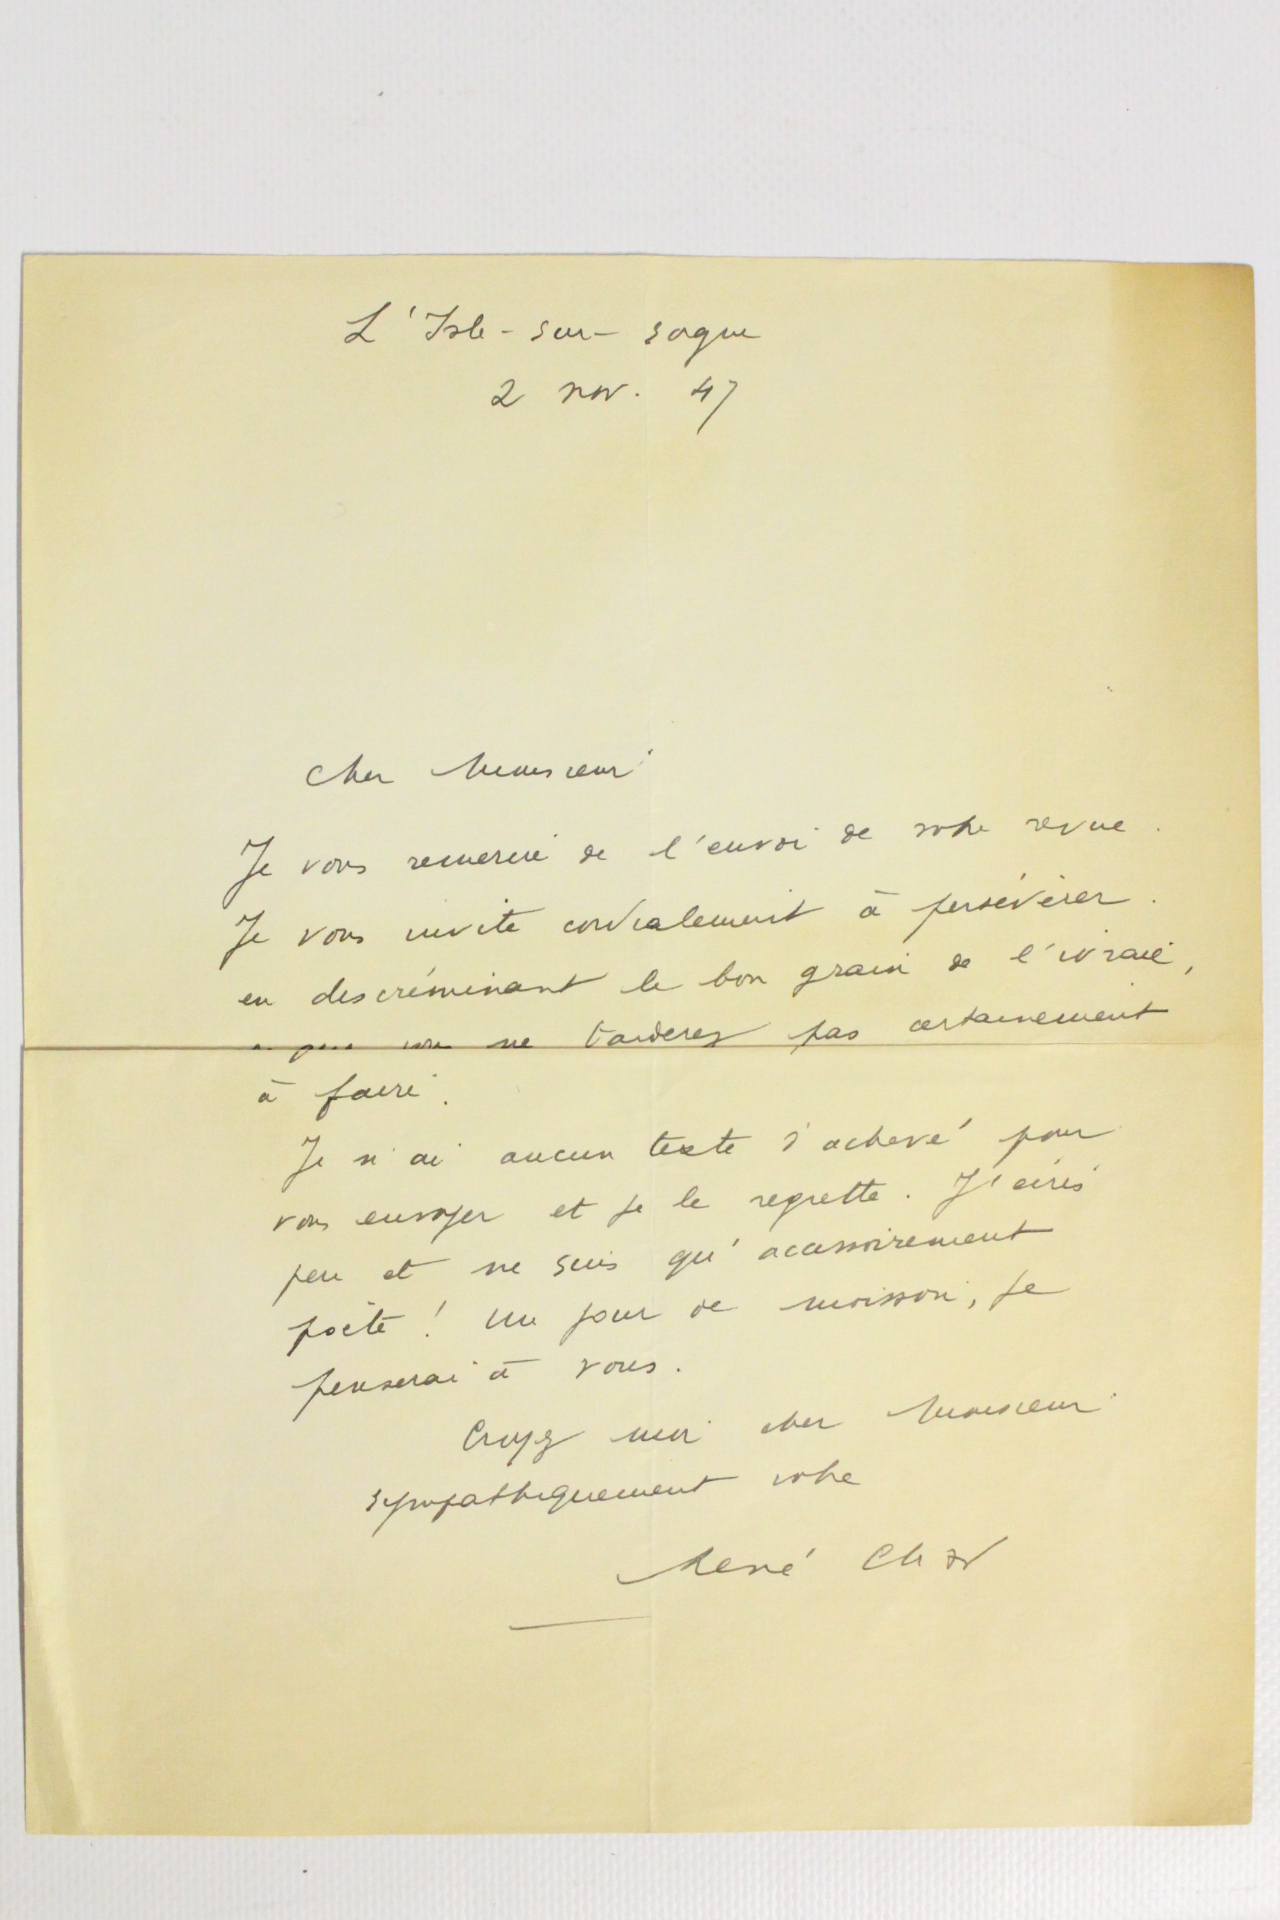 L'Isle-sur-Sorgue
2 nov. 47
Cher Monsieur
Je vous remercie de l'envoi de votre revue.
Je vous invite cordialement à persévérer.
en discréminant le bon grain de l'ivraie,
ne tarderez pas certainement
à faire.
Je n'ai aucun texte d'achevé pour
vous envoyer et je le regrette. J'écris
peu et ne suis qu'accessoirement
poète! Un jour de moisson, je
penserai à vous.
Croyez moi cher Monsieur
sympathiquement votre
René Char